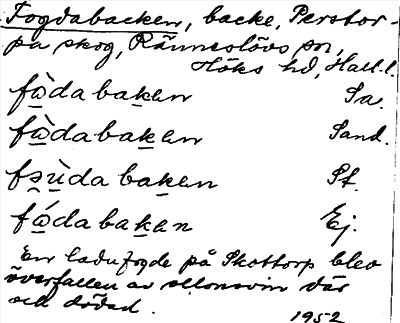 Fogdabacken, backe, Perstor-
pa skog, Ränneslövs sn,
Höks hd, Hall. l.
fὼda baken Sa.
fὼda baken Sand.
fsùda baken St.
fǻda bakan Ej.
En ladufogde på Skottorp blev
överfallen av ollonsvin där
och dödad.
1952